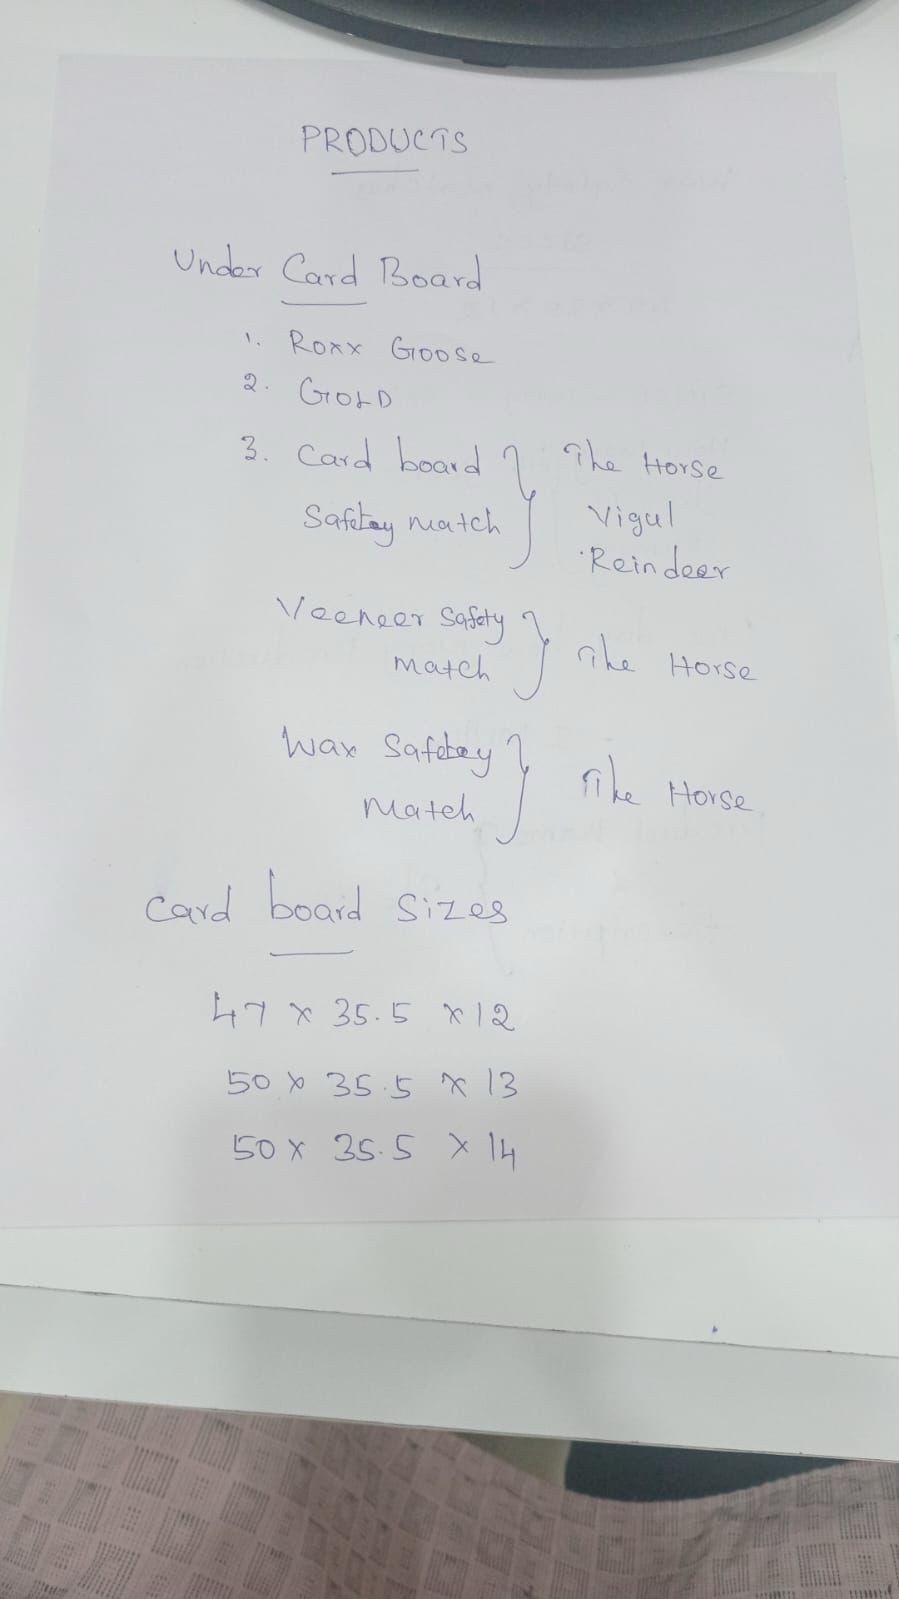 PRODUCTS
Under Card Board
1. Roxx Goose
2. GOLD
3. Card board } The Horse
Safetey match Vigul
Reindeer
Veeneer Safety }
match The Horse
Wax Safetey }
Match The Horse
Card board Sizes
47 x 35.5 x 12
50 x 35.5 x 13
50 x 35.5 x 14